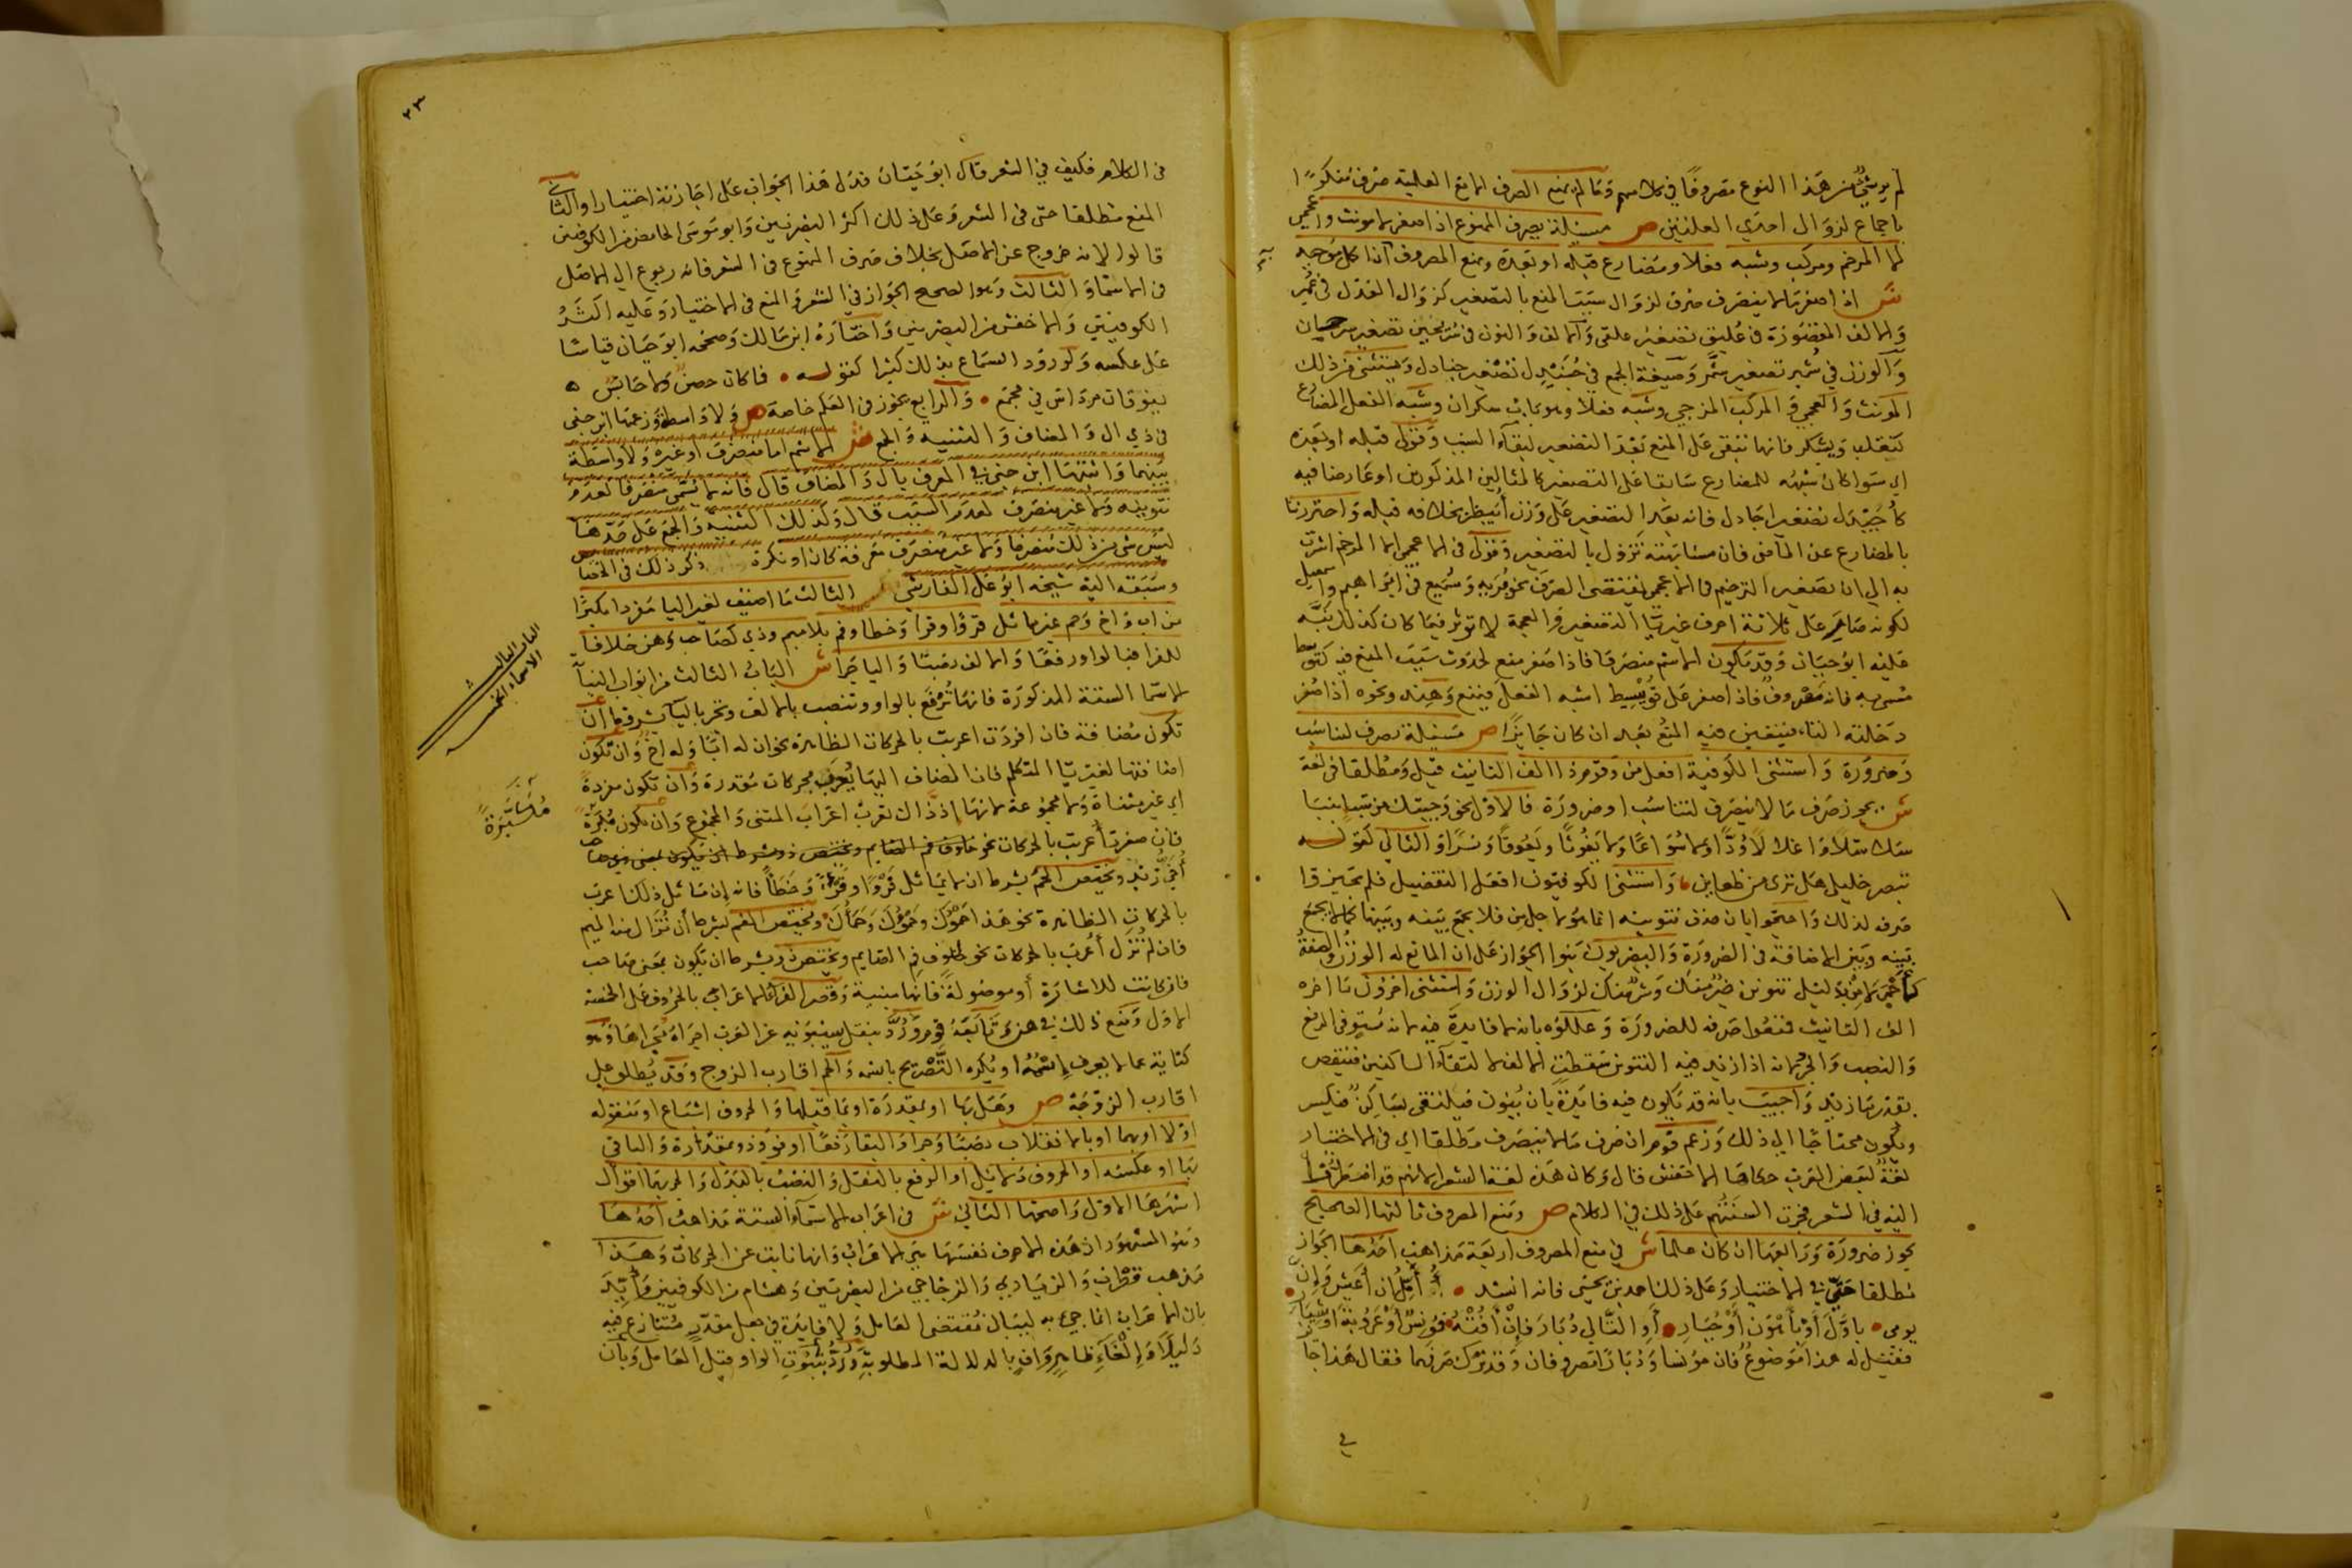 لم يوشي من هذا النوع مصروفا في كلامهم وما لم يمنع الصرف الا مع العلمية صرف منكورا
باجماع لزوال احدي العلتين ص مسئلة يصرف الممنوع اذا صغر لا مونث وعجمي
لا المرخم ومركب وشبه فعلا ومضارع قبله او بعده ويمنع المصروف اذا كل موجبه
ش اذا صغر ما لا ينصرف صرف لزوال سبب المنع بالتصغير كزوال العدل في عمير
والالف المقصورة في عليق تصغير علقى والالف والنون في سريحين تصغير سرحان
والوزن في شمير تصغير شمر وصيغة الجمع في جنيدل تصغير جنادل ويستثنى من ذلك
المونث والعجمي والمركب المزجي وشبه فعلا وهو باب سكران وشبه الفعل المضارع
كتغلب ويشكر فانها تبقى على المنع بعد التصغير لبقاء السبب وقولي قبله او بعده
اي سوا كان شبهه للمضارع سابقا على التصغير كالمثالين المذكورين او عارضا فيه
كاجيدل تصغير اجادل فانه بعد التصغير على وزن ابيطر بخلافه قبله واحترزنا
بالمضارع عن الماضي فان مشابهته تزول بالتصغير وقولي في الاعجمي لا المرخم اشرت
به الى ان تصغير الترخيم في الاعجمي يقتضي الصرف نحو بريه وسميع في ابراهيم واسمعيل
لكونه صار على ثلاثة احرف غير يا التصغير والعجمة لا توثر فيما كان كذلك نبه
عليه ابو حيان وقد يكون الاسم منصرفا فاذا صغر منع لحدوث سبب المنع فيه كتوسط
مسمى به فانه مصروف فاذا صغر على تويسط اشبه الفعل فيمنع وهند ونحوه اذا صغر
دخلته التاء فيتعين فيه المنع بعد ان كان جائزا ص مسئلة يصرف لتناسب
وضرورة واستثنى الكوفية افعل من وقوم ذا الف التانيث قيل ومطلقا في لغة
ش يجوز صرف ما لا ينصرف لتناسب او ضرورة فالاول نحو وجيتك من سبا بنبا
سلاسلا واغلالا ودا ولا سواعا ولا يغوثا ويعوقا ونسرا والثاني كقوله
تبصر خليلي هل ترى من ظعاين واستثنى الكوفيون افعل التفضيل فلم يجيزوا
صرفه لذلك واحتجوا بان حذف تنوينه انما هو لاجل من فلا يجمع بينه وبينها كما لا يجمع
بينه وبين الاضافة في الضرورة والبصريون بنوا الجواز على ان المانع له الوزن والصفة
كاحمر لا من بدليل تنوين خير منك وشر منك لزوال الوزن واستثنى اخرون ما اخره
الف التانيث فمنعوا صرفه للضرورة وعللوه بانه لا فايدة فيه لانه مستو في الرفع
والنصب والجر لانه اذا زيد فيه التنوين سقطت الالف لالتقاء الساكنين فينقص
بقدر ما زيد واجيب بانه قد يكون فيه فايدة بان ينون فيلتقي بساكن فيكسر
ويكون محتاجا الى ذلك وزعم قوم ان صرف ما لا ينصرف مطلقا اي في الاختيار
لغة لبعض العرب حكاها الاخفش قال وكان هذه لغة الشعرا لانهم قد اضطروا
اليه في الشعر فجرت السنتهم على ذلك في الكلام ص ومنع المصروف ثالثها الصحيح
يجوز ضرورة ورابعها ان كان علما ش في منع المصروف اربعة مذاهب احدها الجواز
مطلقا حتى في الاختيار وعلى ذلك احمد بن يحيى فانه انشد اؤمل ان اعيش وان
يومي باول او باهون او جبار او التالي دبار فان افته فمونس او عروبة او شيار
فقيل له هذا موضوع فان مونسا ودبارا مصروفان وقد ترك صرفهما فقال هذا جايز
في
٢٣
في الكلام فكيف في الشعر قال ابو حيان فدل هذا الجواب على اجازته اختيارا والثاني
المنع مطلقا حتى في الشعر وعلى ذلك اكثر البصريين وابو موسى الحامض من الكوفيين
قالوا لانه خروج عن الاصل بخلاف صرف الممنوع في الشعر فانه رجوع الى الاصل
في الاسما والثالث وهو الصحيح الجواز في الشعر والمنع في الاختيار وعليه اكثر
الكوفيين والاخفش من البصريين واختاره ابن مالك وصححه ابو حيان قياسا
على عكسه ولورود السماع بذلك كثيرا كقوله فما كان حصن ولا حابس
يفوقان مرداس في مجمع والرابع يجوز في العلم خاصة ص ولا واسطة وزعمها ابن جني
في ذي ال والمضاف والتثنية والجمع ش الاسم اما منصرف او غيره ولا واسطة
بينهما واثبتها ابن جني في المعرف بال والمضاف قال فانه لا يسمى منصرفا لعدم
تنوينه ولا غير منصرف لعدم السبب قال وكذلك التثنية والجمع على حدها
ليس شي من ذلك منصرفا ولا غير منصرف معرفة كان او نكرة ذكر ذلك في الخصائص
وسبقه اليه شيخه ابو علي الفارسي ص الثالث ما اضيف لغير اليا مفردا مكبرا
من اب واخ وحم غير مماثل قروا وقرا وخطا وفم بلا ميم وذي كصاحب وهن خلافا
للفرا فبالواو رفعا والالف نصبا واليا جرا ش الباب الثالث من ابواب النيابة
الاسما الستة المذكورة فانها ترفع بالواو وتنصب بالالف وتجر باليا بشروط ان
تكون مضافة فان افردت اعربت بالحركات الظاهرة نحو ان له ابا وله اخ وان تكون
اضافتها لغير يا المتكلم فان المضاف اليها يعرب بحركات مقدرة وان تكون مفردة
اي غير مثناة ولا مجموعة لانها اذ ذاك تعرب اعراب المثنى والمجموع وان تكون مكبرة
فان صغرت اعربت بالحركات نحو خلوف فم الصايم ويختص ذو بشرط ان يكون بمعنى صاحب
اخي زيد ويختص الحم بشرط ان لا يماثل قروا وقرا وخطأ فانه ان ماثل ذلك اعرب
بالحركات الظاهرة نحو هذا حموك وحموك وحماك ويختص الفم بشرط ان تزال منه الميم
فان لم تزل اعرب بالحركات نحو خلوف فم الصايم ويختص ذو بشرط ان يكون بمعنى صاحب
فان كانت للاشارة او موصولة فانها مبنية وقصر الفرا الاعراب بالحروف على الخمسة
الاول ومنع ذلك في هن وتابعه قوم ورد بنقل سيبويه عن العرب اجراه مجراها وهو
كناية عما لا يعرف اسمه او يكره التصريح باسمه والحم اقارب الزوج وقد يطلق على
اقارب الزوجة ص وهل بها او بمقدرة او بما قبلها والحروف اشباع او منقوله
اولا او بهما او بالانقلاب نصبا وجرا والبقا رفعا او فو وذو بمقدرة والباقي
بها او عكسه او الحروف دلائل او الرفع بالنقل والنصب بالبدل والجر بهما اقوال
اشهرها الاول واصحها الثاني ش في اعراب الاسماء الستة مذاهب احدها
وهو المشهور ان هذه الاحرف نفسها هي الاعراب وانها نابت عن الحركات وهذا
مذهب قطرب والزيادي والزجاجي من البصريين وهشام من الكوفيين وايد
بان الاعراب انما جيء به لبيان مقتضى العامل ولا فايدة في جعل مقدر متنازع فيه
دليلا والغاء ظاهر واف بالدلالة المطلوبة ورد بثبوت الواو قبل العامل وبان
الباب الثالث
الاسماء الخمسة
مكبرة